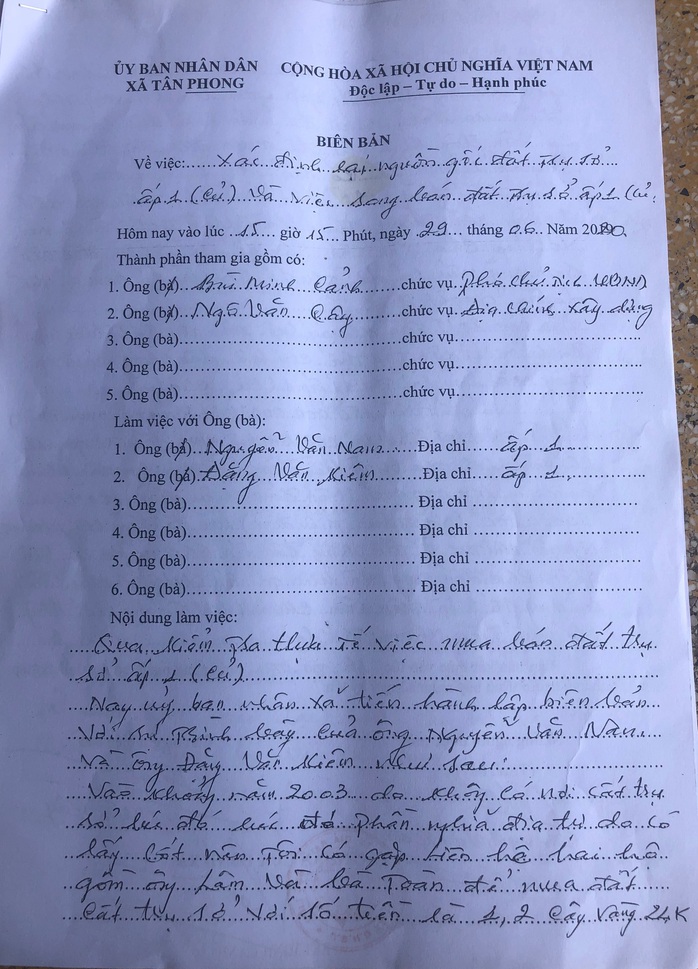 ỦY BAN NHÂN DÂN
XÃ TÂN PHONG
CỘNG HÒA XÃ HỘI CHỦ NGHĨA VIỆT NAM
Độc lập – Tự do – Hạnh phúc
BIÊN BẢN
Về việc: Xác định lại nguồn gốc đất trụ sở
ấp 1 (cũ) và việc sang bán đất trụ sở ấp 1 (cũ.
Hôm nay vào lúc 15 giờ 15 Phút, ngày 29 tháng 06 Năm 2020
Thành phần tham gia gồm có:
1. Ông (bà) Bùi Minh Cảnh chức vụ Phó chủ tịch UBND
2. Ông (bà) Ngô Văn Cây chức vụ Địa chính xây dựng
3. Ông (bà) chức vụ
4. Ông (bà) chức vụ
5. Ông (bà) chức vụ
Làm việc với Ông (bà):
1. Ông (bà) Nguyễn Văn Nam Địa chỉ ấp 1
2. Ông (bà) Đặng Văn Kiêm Địa chỉ ấp 1
3. Ông (bà) Địa chỉ
4. Ông (bà) Địa chỉ
5. Ông (bà) Địa chỉ
6. Ông (bà) Địa chỉ
Nội dung làm việc:
Qua kiểm tra thực tế việc mua bán đất trụ
sở ấp 1 (cũ)
Nay ủy ban nhân xã tiến hành lập biên bản
với sự trình bày của ông Nguyễn Văn Nam
và ông Đặng Văn Kiêm như sau:
Vào khoảng năm 2003 do không có nơi cất trụ
sở lúc đó đất phần nghĩa địa
cất nên Tôi có gặp liên hệ hai hộ
gồm ông Lâm và bà Toàn để mua đất
cất trụ sở với số tiền là 1,2 cây vàng 24K